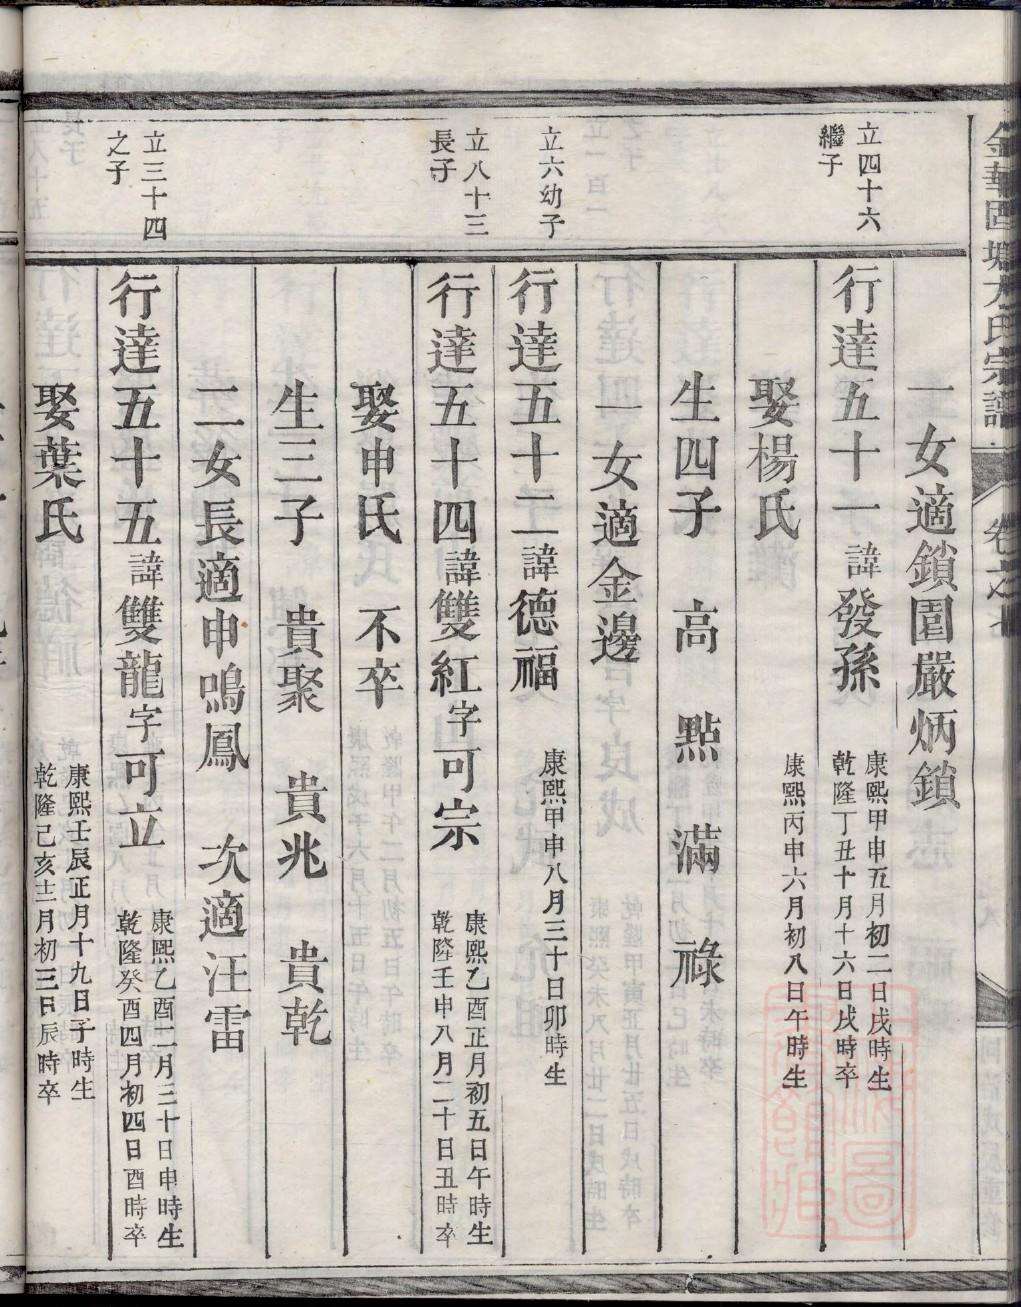 一女適鎖園嚴炳鎖
立四十六
繼子
行達五十一諱發孫
康熙甲申五月初二日戌時生
乾隆丁丑十月十六日戌時卒
娶楊氏
康熙丙申六月初八日午時生
生四子 高 點 滿 祿
一女適金邊
立六幼子
行達五十二諱德福
康熙甲申八月三十日卯時生
立八十三
長子
行達五十四諱雙紅字可宗
康熙乙酉正月初五日午時生
乾隆壬申八月二十日丑時卒
娶申氏 不卒
生三子 貴聚 貴兆 貴乾
二女長適申鳴鳳 次適汪雷
立三十四
之子
行達五十五諱雙龍字可立
康熙乙酉二月三十日申時生
乾隆癸酉四月初四日酉時卒
娶葉氏
康熙壬辰正月十九日子時生
乾隆己亥十二月初三日辰時卒